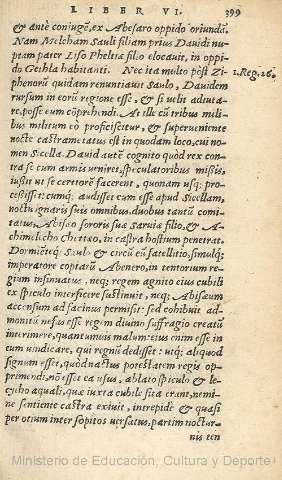 LIBER VI. 399
& antè coniugē, ex Abesaro oppido oriundā.
Nam Melcham Sauli filiam prius Dauidi nu-
ptam pater Liso Pheltiæ filio elocauit, in oppi-
do Gethla habitanti. Nec ita multo pòst Zi-
1. Reg. 26.
phenorū quidam renuntiauit Saulo, Dauidem
rursum in eorū regione esse, & si uelit adiuta-
re, posse eum cōprehendi. At ille cū tribus mili-
bus militum eò proficiscitur, & superueniente
nocte castrametatus est in quodam loco, cui no-
men Sicella. Dauid autē cognito quòd rex con-
tra se cum armis ueniret, speculatoribus missis,
iussit ut se certiorē facerent, quonam usq; pro-
cessisset: cumq; audisset eum esse apud Sicellam,
noctu ignaris suis omnibus, duobus tantū comi-
tatus, Abisæo sororis suæ Saruiæ filio, & A-
chimelicho Chettæo, in castra hostium penetrat.
Dormiēteq; Saulo & circū eū satellitio, simulq;
imperatore copiarū Abenero, in tentorium re-
gium insinuatus, neq; regem agnito eius cubili
ex spiculo interficere sustinuit, neq; Abisæum
accensum ad facinus permisit: sed cohibuit ad-
monitū nefas esse regem diuino suffragio creatū
interimere, quantumuis malum: eius enim esse in
eum uindicare, qui regnū dedisset: utq; aliquod
signum esset, quòd nactus potestatem regis op-
primendi, nō esset ea usus, ablato spiculo & le-
cytho aquali, quæ iuxta cubile sita erant, nemi-
ne sentiente castra exiuit, intrepidè & quasi
per otium inter sopitos uersatus, partim noctur-
nis ten
Ministerio de Educación, Cultura y Deporte